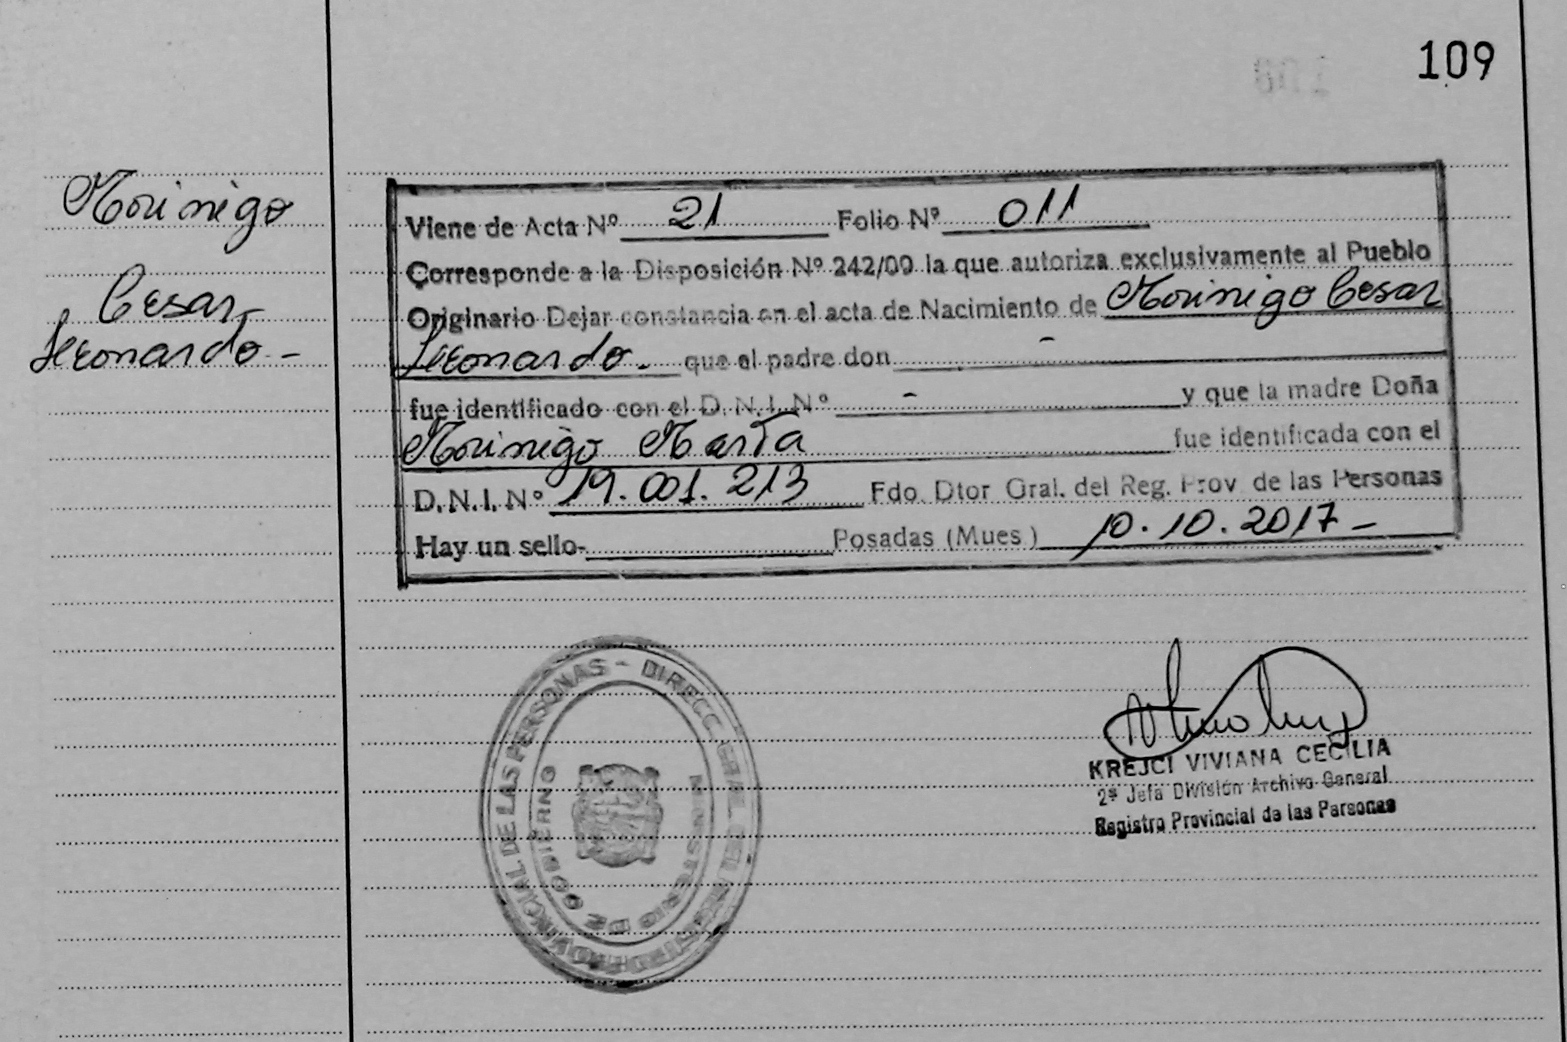 109
Morinigo
Cesar
Leonardo -
Viene de Acta Nº 21 Folio Nº 011
Corresponde a la Disposición Nº 242/00 la que autoriza exclusivamente al Pueblo
Originario Dejar constancia en el acta de Nacimiento de Morinigo Cesar
Leonardo. que el padre don -
fue identificado con el D.N.I. Nº - y que la madre Doña
Morinigo Marta fue identificada con el
D.N.I. Nº 19.001.213 Fdo. Dtor Gral. del Reg. Prov de las Personas
Hay un sello- Posadas (Mnes) 10.10.2017 -
DIRECC. GRAL. DEL REGISTRO PROVINCIAL DE LAS PERSONAS -
MINISTERIO DE GOBIERNO
KREJCI VIVIANA CECILIA
2ª Jefa División Archivo General
Registro Provincial de las Personas